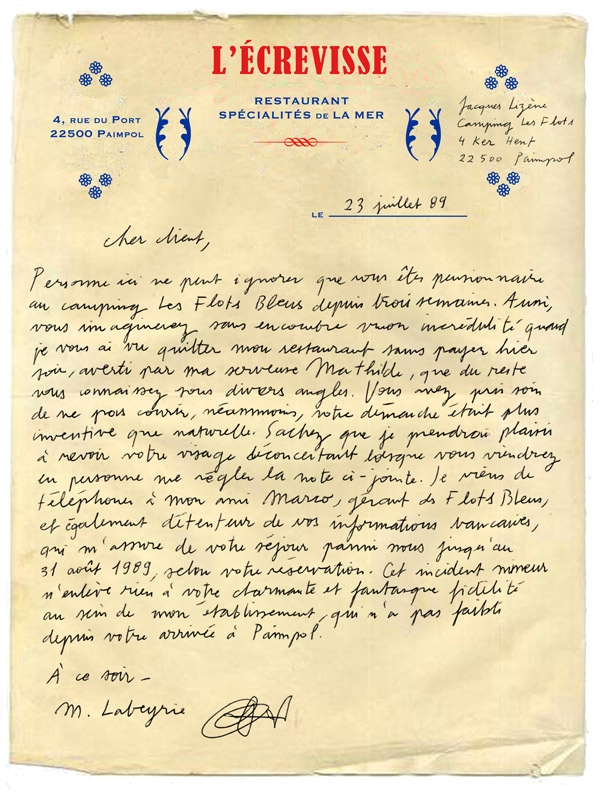 L'ÉCREVISSE
RESTAURANT
SPÉCIALITÉS DE LA MER
4, RUE DU PORT
22500 PAIMPOL
Jacques Lizène
Camping Les Flots
4 Ker Hent
22500 Paimpol
LE 23 juillet 89
Cher client,
Personne ici ne peut ignorer que vous êtes pensionnaire
au camping Les Flots Bleus depuis trois semaines. Aussi,
vous imaginerez sans encombre mon incrédulité quand
je vous ai vu quitter mon restaurant sans payer hier
soir, averti par ma serveuse Mathilde, que du reste
vous connaissez sous divers angles. Vous avez pris soin
de ne pas courir, néanmoins, votre démarche était plus
inventive que naturelle. Sachez que je prendrai plaisir
à revoir votre visage déconcertant lorsque vous viendrez
en personne me régler la note ci-jointe. Je viens de
téléphoner à mon ami Marco, gérant des Flots Bleus,
et également détenteur de vos informations bancaires,
qui m'assure de votre séjour parmi nous jusqu'au
31 août 1989, selon votre réservation. Cet incident mineur
n'enlève rien à votre charmante et fantasque fidélité
au sein de mon établissement, qui n'a pas faibli
depuis votre arrivée à Paimpol.
À ce soir -
M. Labeyrie